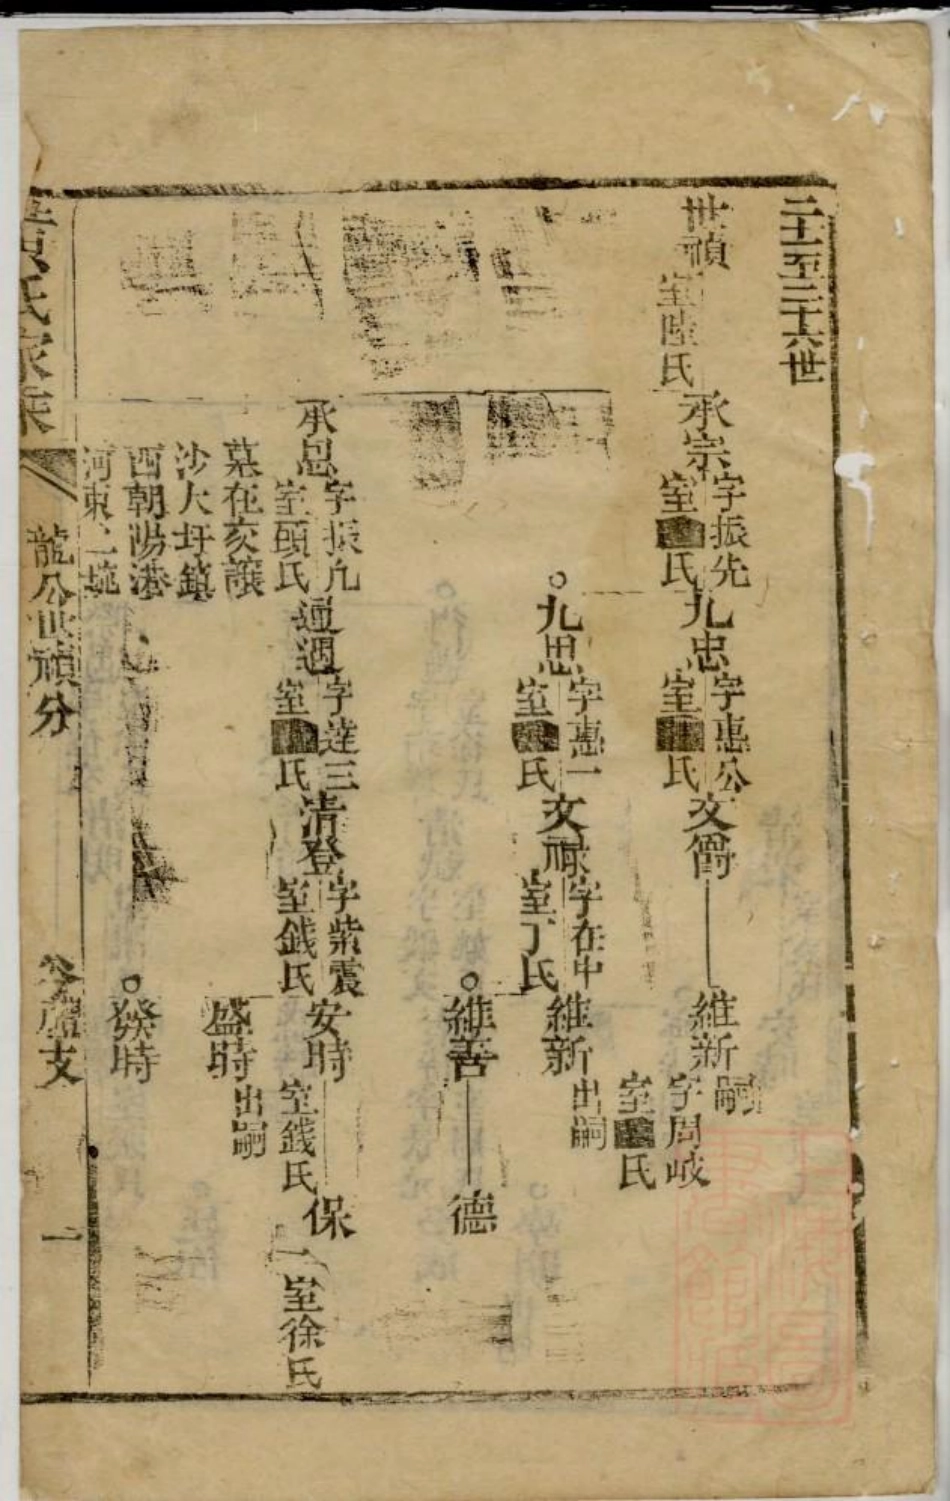 二十一至二十六世
世禎
室陸氏
承宗
字振先
室氏
九忠
字惠公
室氏
文爵
維新
嗣
字周岐
室氏
九思
字惠一
室氏
文祿
字在中
室丁氏
維新
出嗣
維善
德
承恩
字振凡
室頭氏
墓在亥讓
沙大圩鎮
西朝陽港
河東二堍
通週
字達三
室氏
清登
字紫震
室錢氏
安時
室錢氏
保一
室徐氏
盛時
出嗣
發時
氏家乘
龍公世禎分
支
一